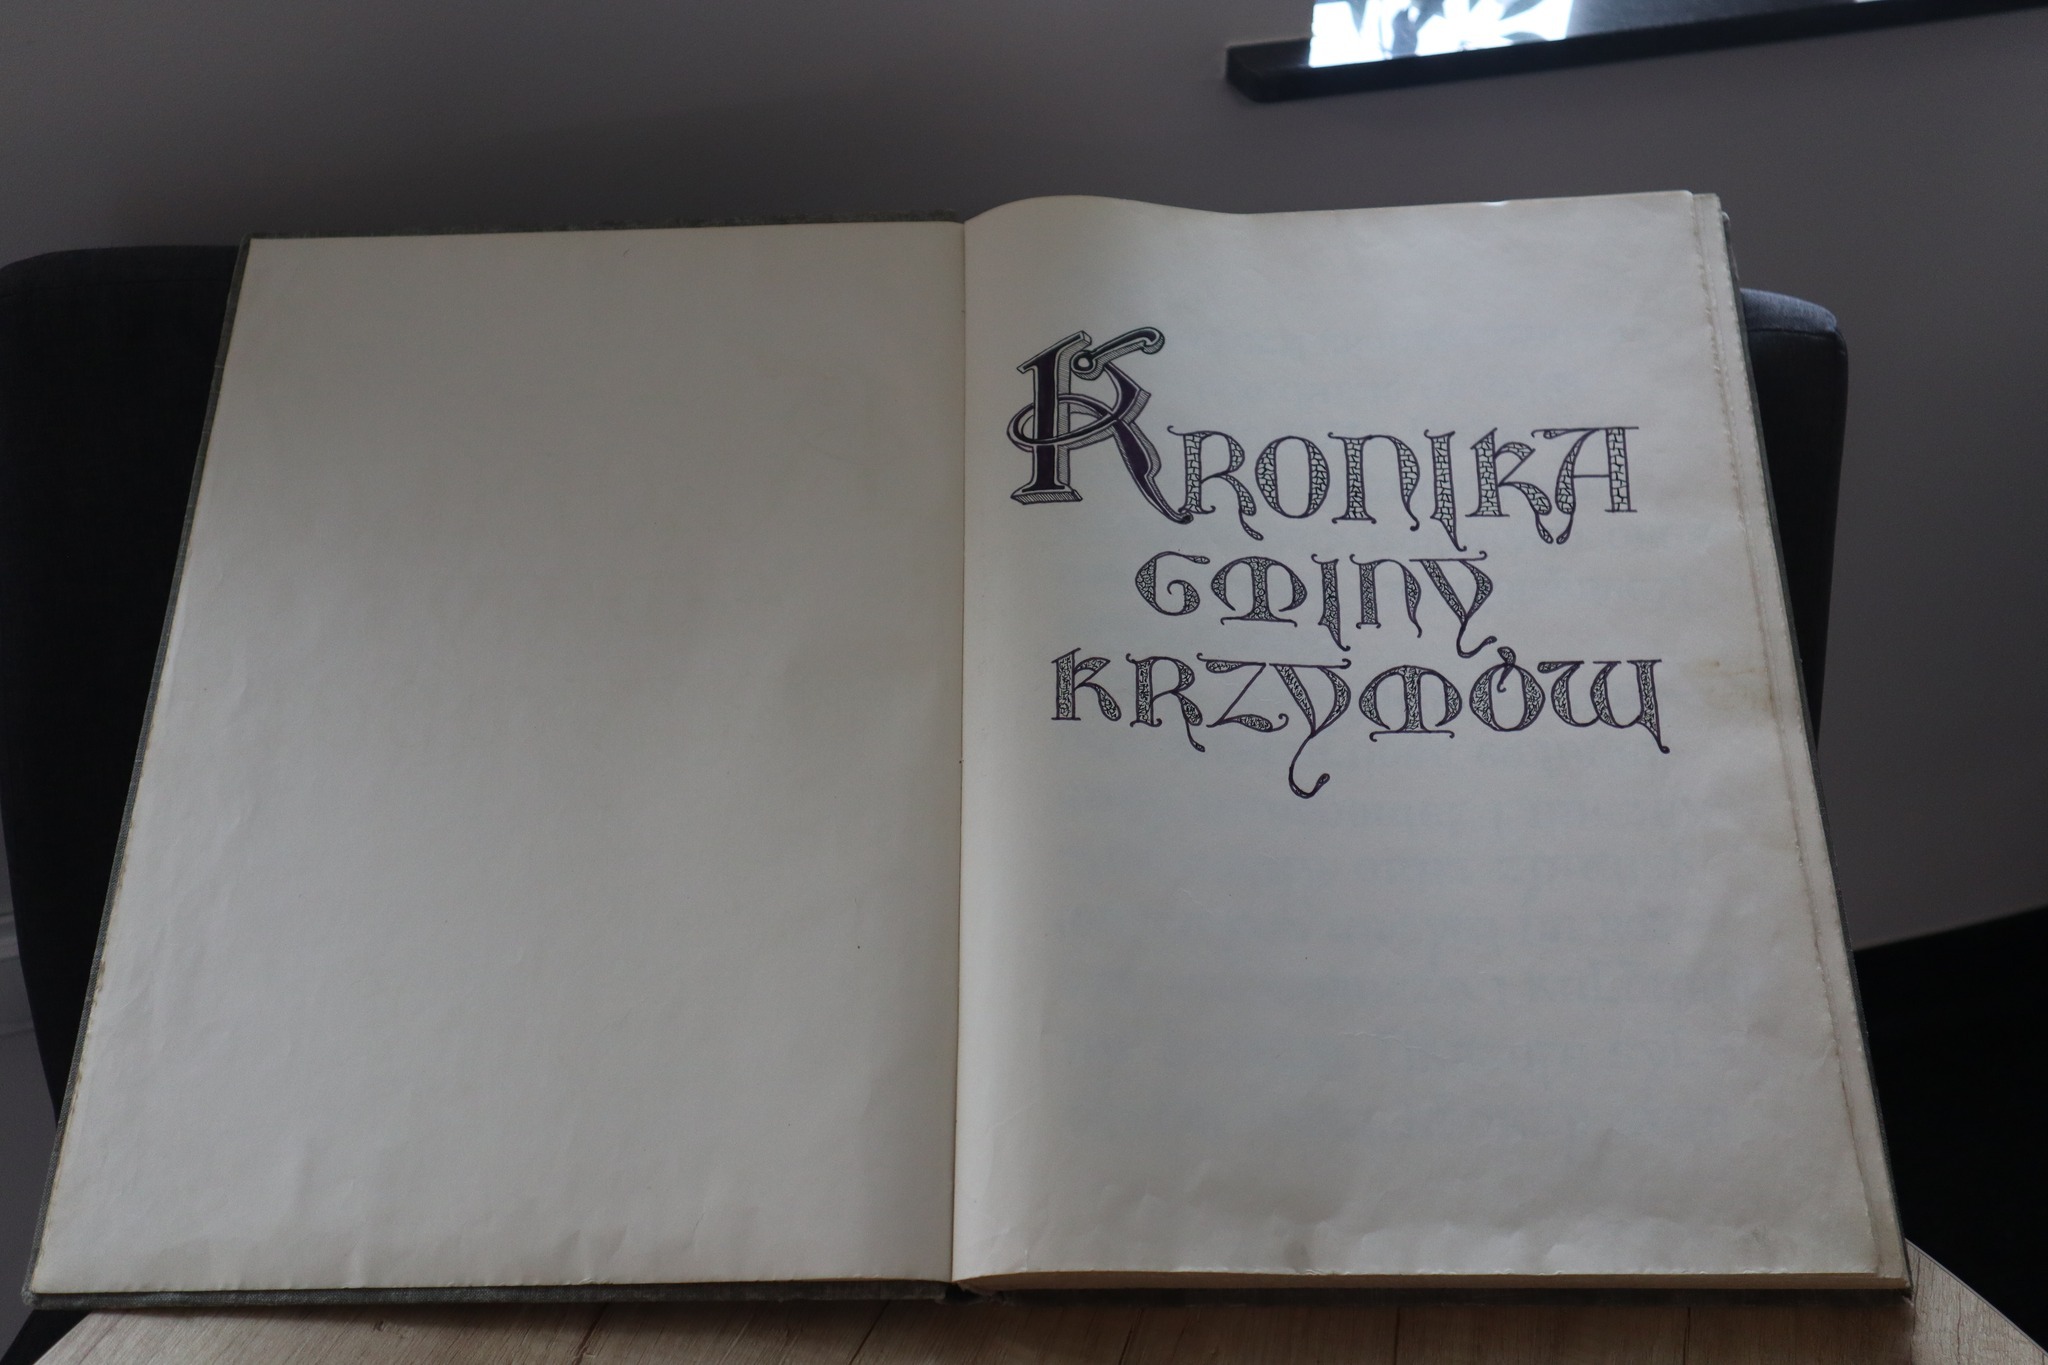 KRONIKA
GMINY
KRZYMÓW